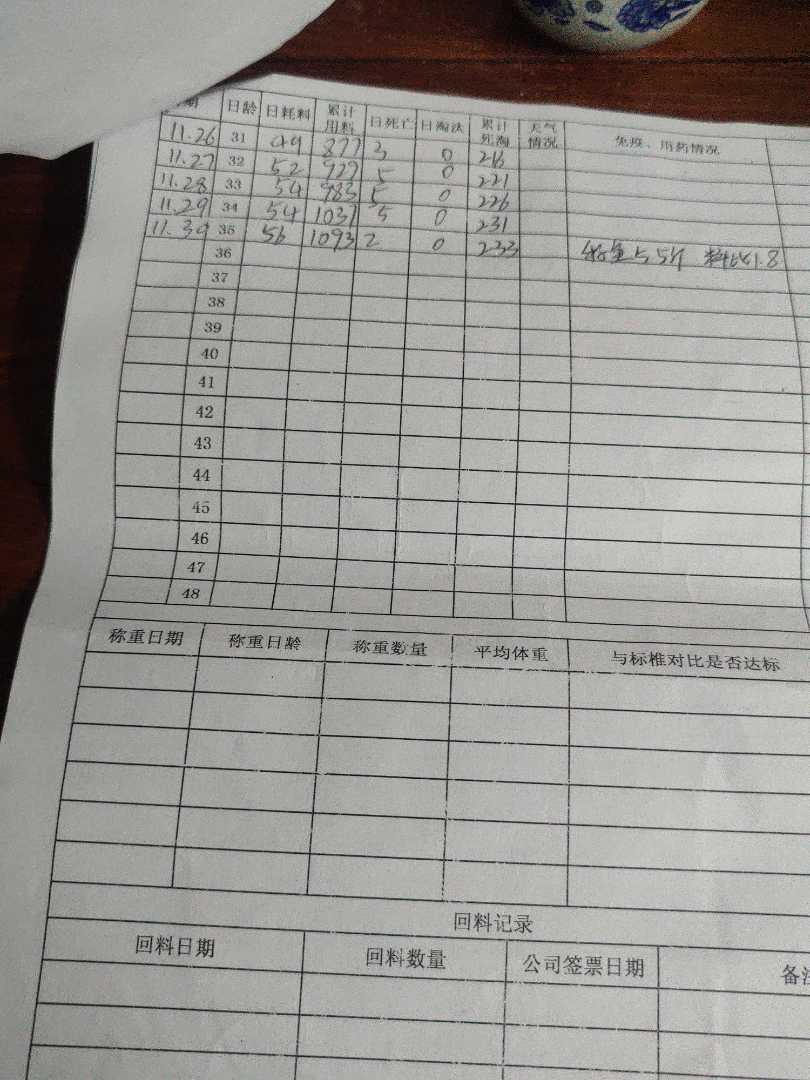 期 日龄 日耗料 累计用料 日死亡 日淘汰 累计死淘 天气情况 免疫、用药情况
11.26 31 49 877 3 0 216
11.27 32 52 929 5 0 221
11.28 33 54 983 5 0 226
11.29 34 54 1037 5 0 231
11.30 35 56 1093 2 0 233
36 称重5.5斤 料比1.8
37
38
39
40
41
42
43
44
45
46
47
48
称重日期 称重日龄 称重数量 平均体重 与标椎对比是否达标
回料记录
回料日期 回料数量 公司签票日期 备注